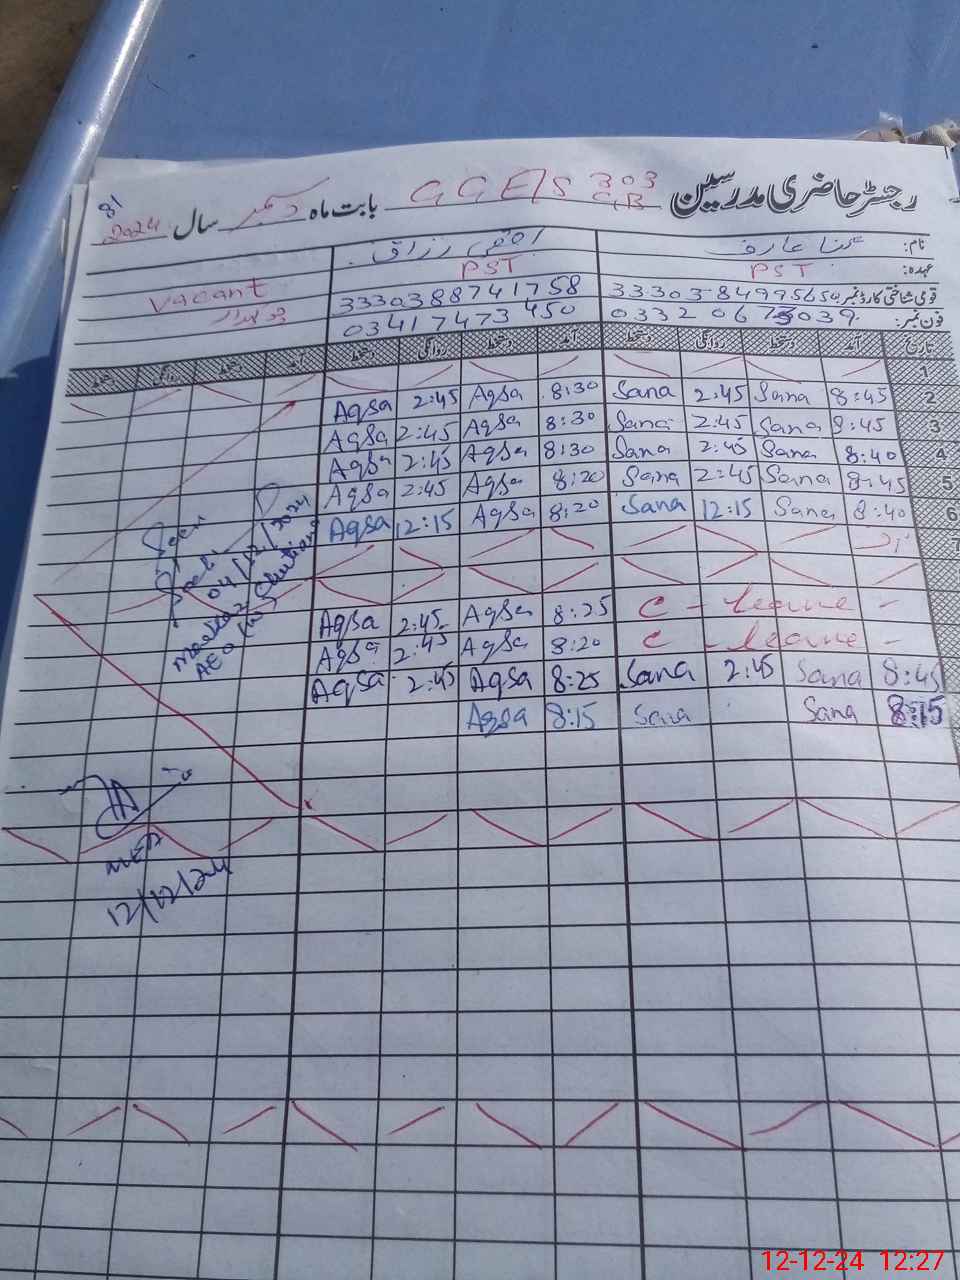 رجسٹر حاضری مدرسین GGE/S 303 GB بابت ماہ دسمبر سال 2024
81
نام: ثناء عارف اقصیٰ رزاق
عہدہ: PST PST Vacant
قومی شناختی کارڈ نمبر: 3330388741758
فون نمبر: 03417473450 چوکیدار
تاریخ آمد دستخط روانگی دستخط آمد دستخط روانگی دستخط آمد دستخط روانگی دستخط
1
2 8:45 Sana 2:45 Sana 8:30 Aqsa 2:45 Aqsa
3 8:45 Sana 2:45 Sana 8:30 Aqsa 2:45 Aqsa
4 8:40 Sana 2:45 Sana 8:30 Aqsa 2:45 Aqsa
5 8:45 Sana 2:45 Sana 8:20 Aqsa 2:45 Aqsa
6 8:40 Sana 12:15 Sana 8:20 Aqsa 12:15 Aqsa
7
C - leave - 8:25 Aqsa 2:45 Aqsa
C - leave - 8:20 Aqsa 2:45 Aqsa
8:45 Sana 2:45 Sana 8:25 Aqsa 2:45 Aqsa
8:15 Sana Sana 8:15 Aqsa
Seen
04/12/2024
AEO (W)
MEA
12/12/24
12-12-24 12:27